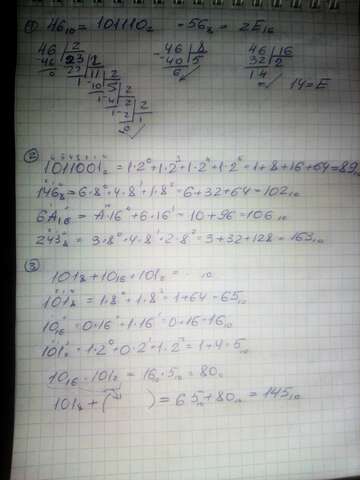 ① 46₁₀ = 101110₂ = 56₈ = 2E₁₆
46 | 2
-46 23 | 2
0 22 11 | 2
1 -10 5 | 2
1 -4 2 | 2
1 -2 1
0
-46 | 8
-40 5
6
46 | 16
32 2
14 14=E
② 1011001₂ = 1·2⁰+1·2³+1·2⁴+1·2⁶ = 1+8+16+64=89
146₈ = 6·8⁰+4·8¹+1·8² = 6+32+64=102₁₀
6A₁₆ = A·16⁰+6·16¹ = 10+96=106₁₀
243₈ = 3·8⁰+4·8¹+2·8² = 3+32+128=163₁₀
③ 101₈+10₁₆·101₂ = ...₁₀
101₈ = 1·8⁰+1·8² = 1+64=65₁₀
10₁₆ = 0·16⁰+1·16¹ = 0+16=16₁₀
101₂ = 1·2⁰+0·2¹+1·2² = 1+4=5₁₀
10₁₆·101₂ = 16₁₀·5₁₀ = 80₁₀
101₈+( ) = 65₁₀+80₁₀ = 145₁₀